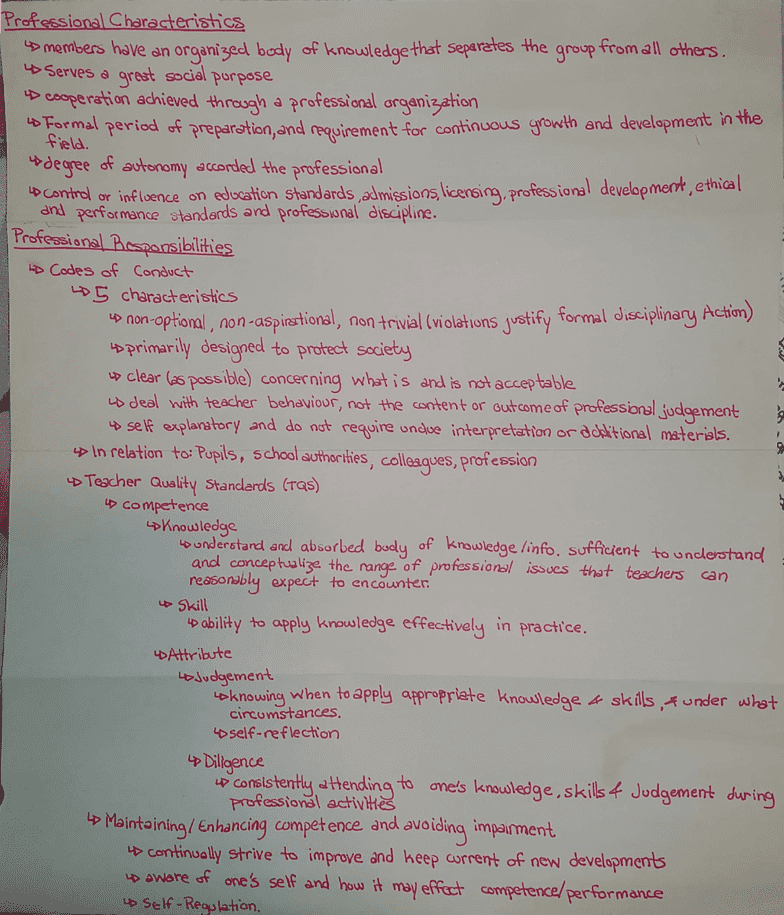 Professional Characteristics
↳ members have an organized body of knowledge that separates the group from all others.
↳ Serves a great social purpose
↳ cooperation achieved through a professional organization
↳ Formal period of preparation, and requirement for continuous growth and development in the
field.
↳ degree of autonomy accorded the professional
↳ control or influence on education standards, admissions, licensing, professional development, ethical
and performance standards and professional discipline.
Professional Responsibilities
↳ Codes of Conduct
↳ 5 characteristics
↳ non-optional, non-aspirational, non trivial (violations justify formal disciplinary Action)
↳ primarily designed to protect society
↳ clear (as possible) concerning what is and is not acceptable
↳ deal with teacher behaviour, not the content or outcome of professional judgement
↳ self explanatory and do not require undue interpretation or additional materials.
↳ In relation to: Pupils, school authorities, colleagues, profession
↳ Teacher Quality Standards (TQS)
↳ competence
↳ Knowledge
↳ understand and absorbed body of knowledge/info. sufficient to understand
and conceptualize the range of professional issues that teachers can
reasonably expect to encounter.
↳ Skill
↳ ability to apply knowledge effectively in practice.
↳ Attribute
↳ Judgement
↳ knowing when to apply appropriate knowledge & skills, & under what
circumstances.
↳ self-reflection
↳ Diligence
↳ consistently attending to one's knowledge, skills & Judgement during
professional activities
↳ Maintaining/Enhancing competence and avoiding impairment
↳ continually strive to improve and keep current of new developments
↳ aware of one's self and how it may effect competence/performance
↳ Self-Regulation.